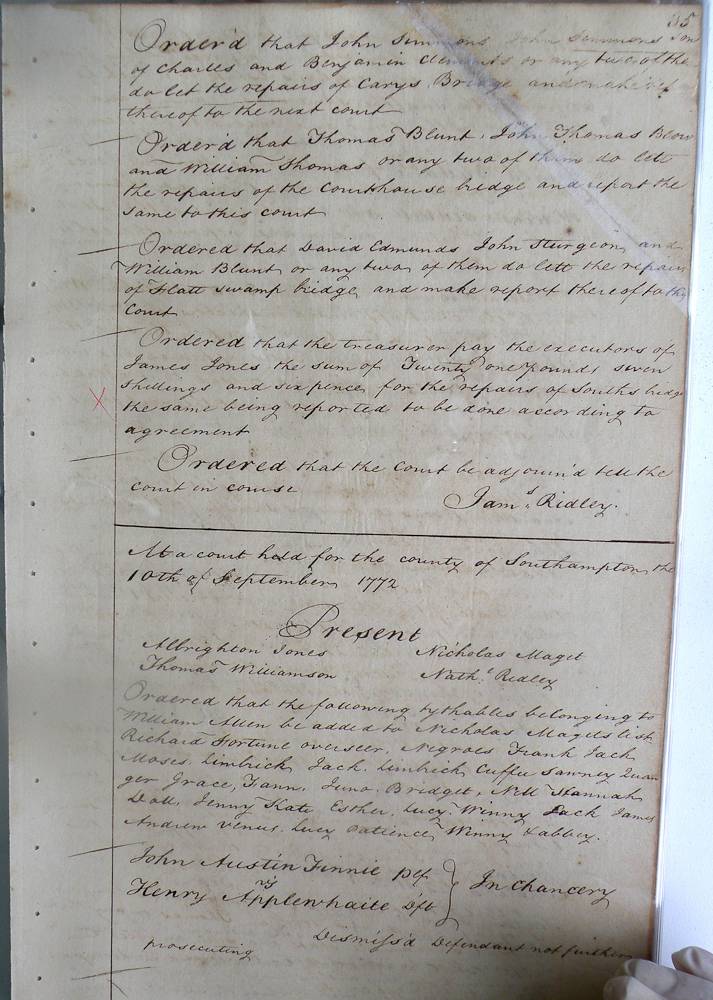 35
Order'd that John Simmons, John Simmons Son
of Charles and Benjamin Clements or any two of the
do let the repairs of Carys Bridge and make
thereof to the next court
Order'd that Thomas Blunt, John Thomas Blow
and William Thomas or any two of them do lett
the repairs of the Courthouse bridge and report the
same to this court
Ordered that David Edmunds John Sturgeon and
William Blunt or any two of them do lett the repairs
of Flatt swamp bridge and make report thereof to the
Court
Ordered that the treasurer pay the executors of
James Jones the sum of Twenty one pounds seven
shillings and six pence for the repairs of Souths bridge
the same being reported to be done according to
agreement
Ordered that the Court be adjourn'd till the
court in course
Jams. Ridley.
At a court held for the county of Southampton the
10th of September 1772
Present
Albrighton Jones Nicholas Maget
Thomas Williamson Nathl. Ridley
Ordered that the following tythables belonging to
William Allen be added to Nicholas Magets list
Richard Fortune overseer, Negroes Frank Jack
Moses, Limbrick Jack, Limbrick Cuffee Sawney Quan
ger Grace, Fann, Juno, Bridget, Nell Hannah
Doll, Jenny Kate Esther, Lucy, Winny Jack James
Andrew Venus, Lucy Patience, Winny & abbey.
John Austin Finnie Plf } In Chancery
vs
Henry Applewhaite Dft
Dismiss'd Defendant not further
prosecuting